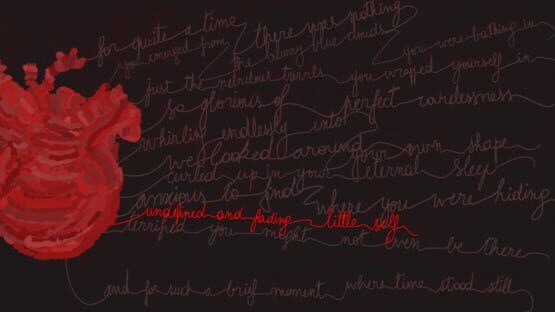 for quite a time there was nothing
you emerged from the blurry blue clouds you were bathing in
just the nebulous turrls you wrapped yourself in
so glorious of perfect carelessness
whirling endlessly into your own shape
we looked around
curled up in your eternal sleep
anxious to find where you were hiding
undefined and fading little self
terrified you might not even be there
and for such a brief moment where time stood still